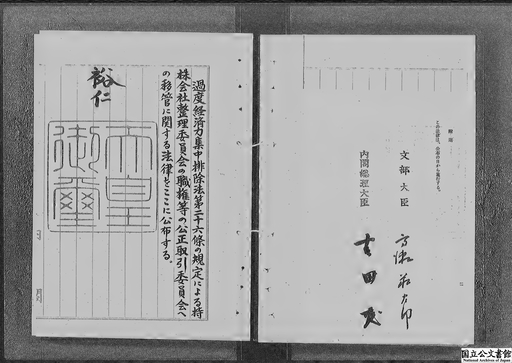 過度経済力集中排除法第二十六條の規定による持
株会社整理委員会の職権等の公正取引委員会へ
の移管に関する法律をここに公布する。
裕仁
天皇
御璽
附則
この法律は、公布の日から施行する。
文部大臣
内閣総理大臣
吉田茂
国立公文書館
National Archives of Japan